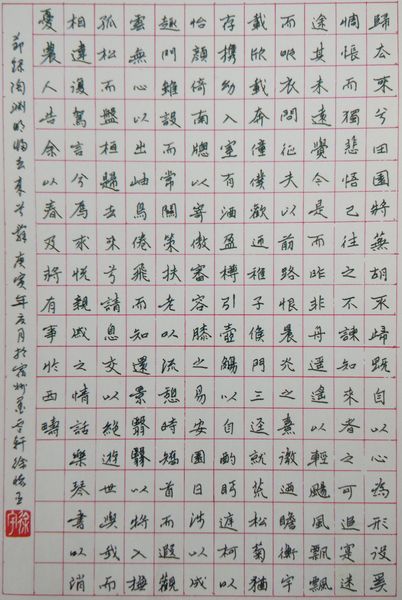 歸去來兮田園將蕪胡不歸既自以心為形役奚
惆悵而獨悲悟已往之不諫知來者之可追寔迷
途其未遠覺今是而昨非舟遙遙以輕颺風飄飄
而吹衣問征夫以前路恨晨光之熹微迺瞻衡宇
載欣載奔僮僕歡迎稚子候門三逕就荒松菊猶
存攜幼入室有酒盈樽引壺觴以自酌眄庭柯以
怡顏倚南牕以寄傲審容膝之易安園日涉以成
趣門雖設而常關策扶老以流憩時矯首而遐觀
雲無心以出岫鳥倦飛而知還景翳翳以將入撫
孤松而盤桓歸去來兮請息交以絕遊世與我而
相違復駕言兮焉求悅親戚之情話樂琴書以消
憂農人告余以春及將有事於西疇
節錄陶淵明歸去來兮辭庚寅年六月於宿州軒徐